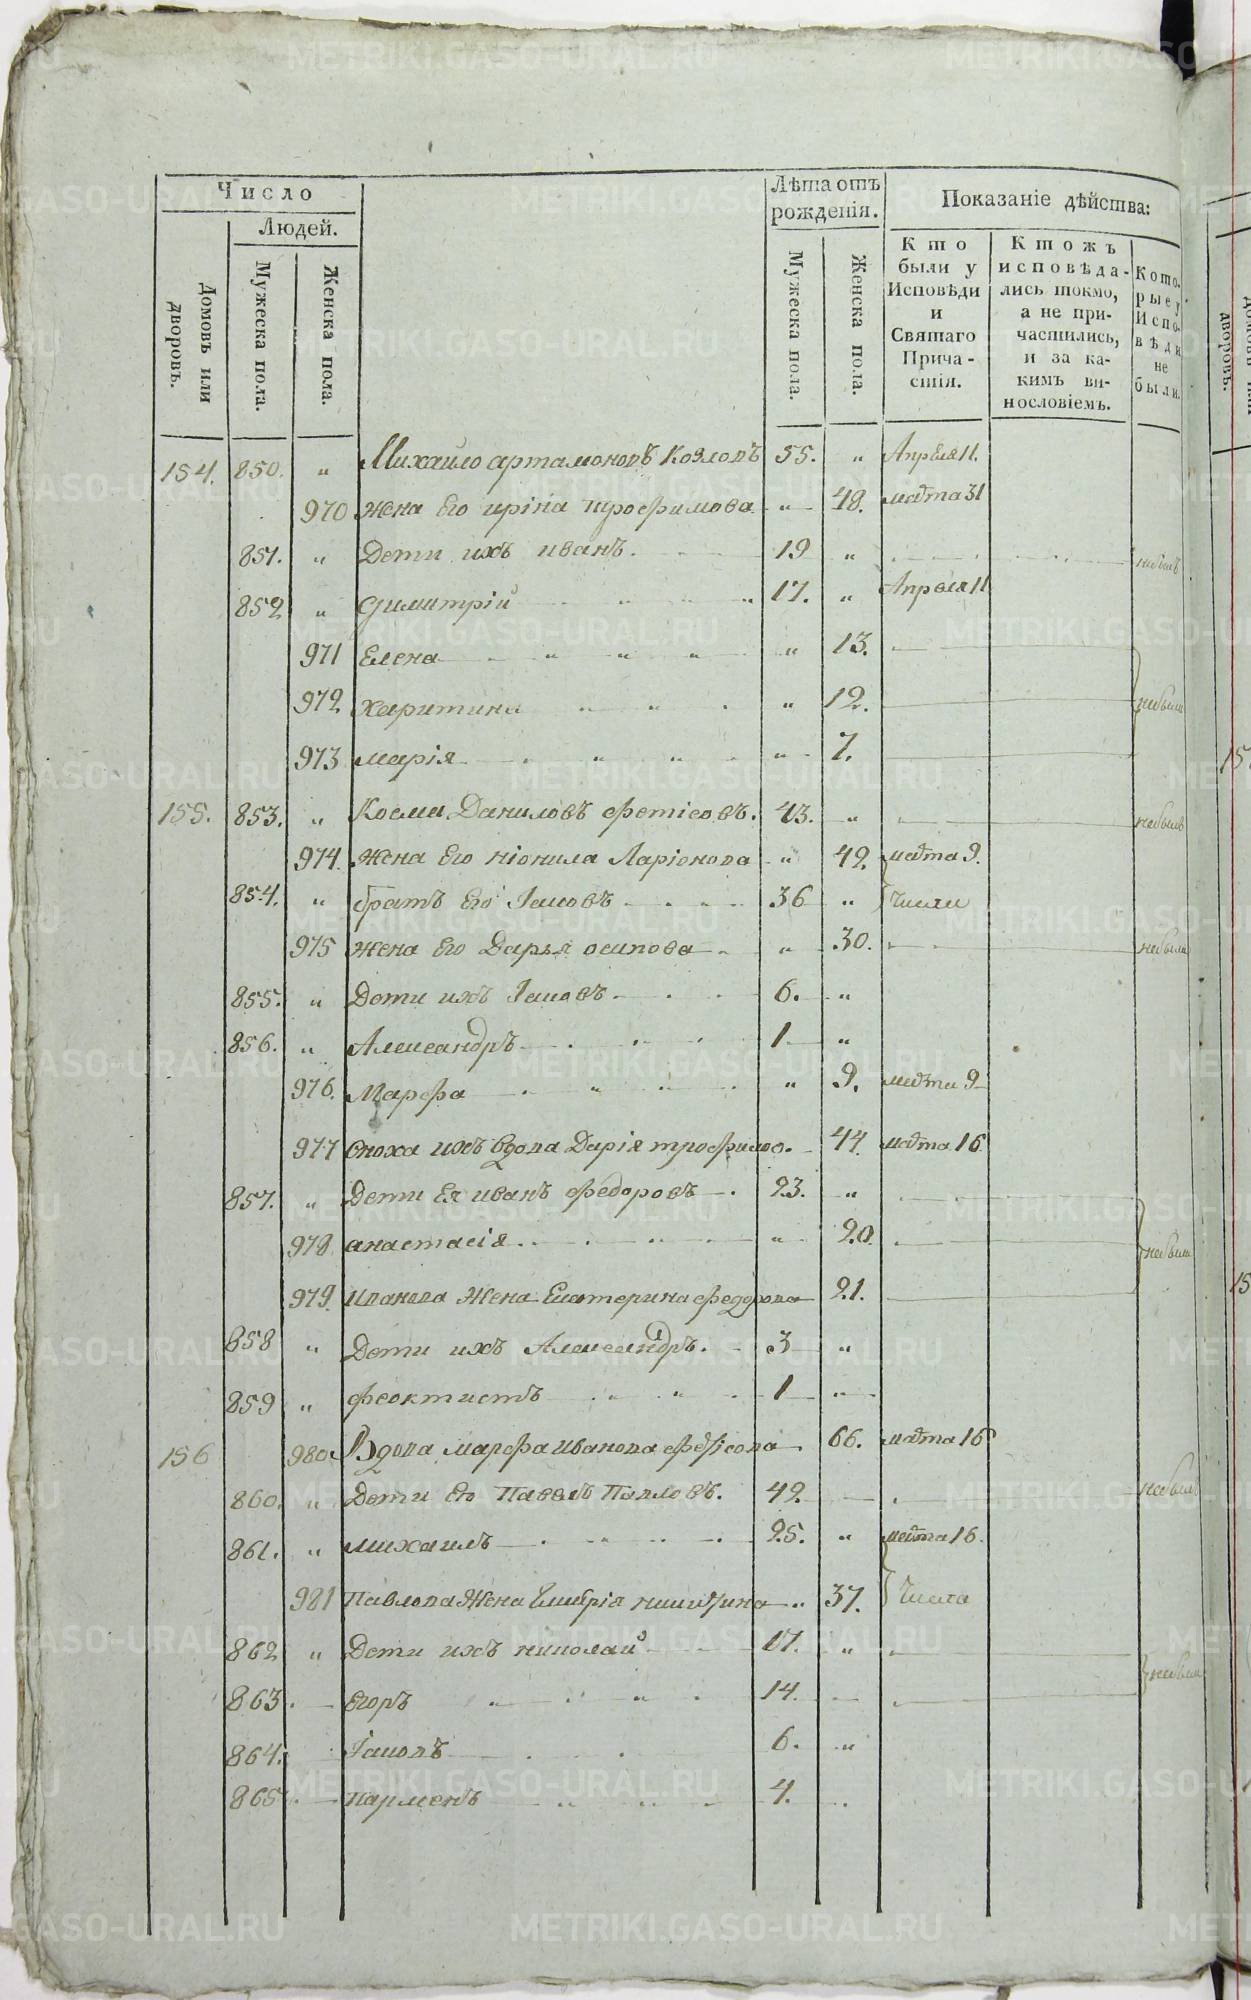 Число
Людей.
Домовъ или дворовъ.
Мужеска пола.
Женска пола.
Лѣта отъ рожденія.
Мужеска пола.
Женска пола.
Показаніе дѣйства:
Кто были у Исповѣди и Святаго Причастія.
Ктожъ исповѣдались токмо, а не причастились, и за какимъ винословіемъ.
Которые у Исповѣди не были.
154. 850. „ Михайло артамоновъ Козловъ 55. „ Апреля 11.
970 Жена Его иріна трофимова „ 48. маѳта 31
851. „ Дети ихъ иванъ. 19 „ небылъ
852 „ Димитрій „ „ „ 17. „ Апреля 11
971 Елена „ „ „ „ 13.
972 харитина „ „ „ 12. небыли
973 марія „ „ „ 7.
155. 853. „ Косма Даниловъ фетісовъ. 43. „ небылъ
974. Жена Его ніонила Ларіонова „ 42. марта 9.
854. „ братъ Его Іаковъ 36 „ числа
975 жена Его Дарья осипова „ 30. небыла
855. „ Дети ихъ Іаковъ 6. „
856. „ Александръ 1 „
976. Марфа „ „ „ 9. марта 9
977 сноха ихъ вдова Дарія трофимова. 44. марта 16
857. „ Дети Ея иванъ федоровъ 23. „
978 анастасія „ „ 20. небыли
979. Иванова Жена Екатерина федорова 21.
858 „ Дети ихъ Александръ. 3 „
859 „ феоктистъ „ „ 1 „
156 980 Вдова марфа иванова фетісова 66. марта 16
860. „ Дети Ея Павелъ Павловъ. 42. небылъ
861. „ михаилъ „ „ 25. „ марта 16.
981 Павлова Жена никитина „ 37. числа
862 „ Дети ихъ николай 17. „ небыли
863. Егоръ „ „ „ 14.
864. Іаковъ 6. „
865. парменъ „ „ „ 4.
METRIKI.GASO-URAL.RU